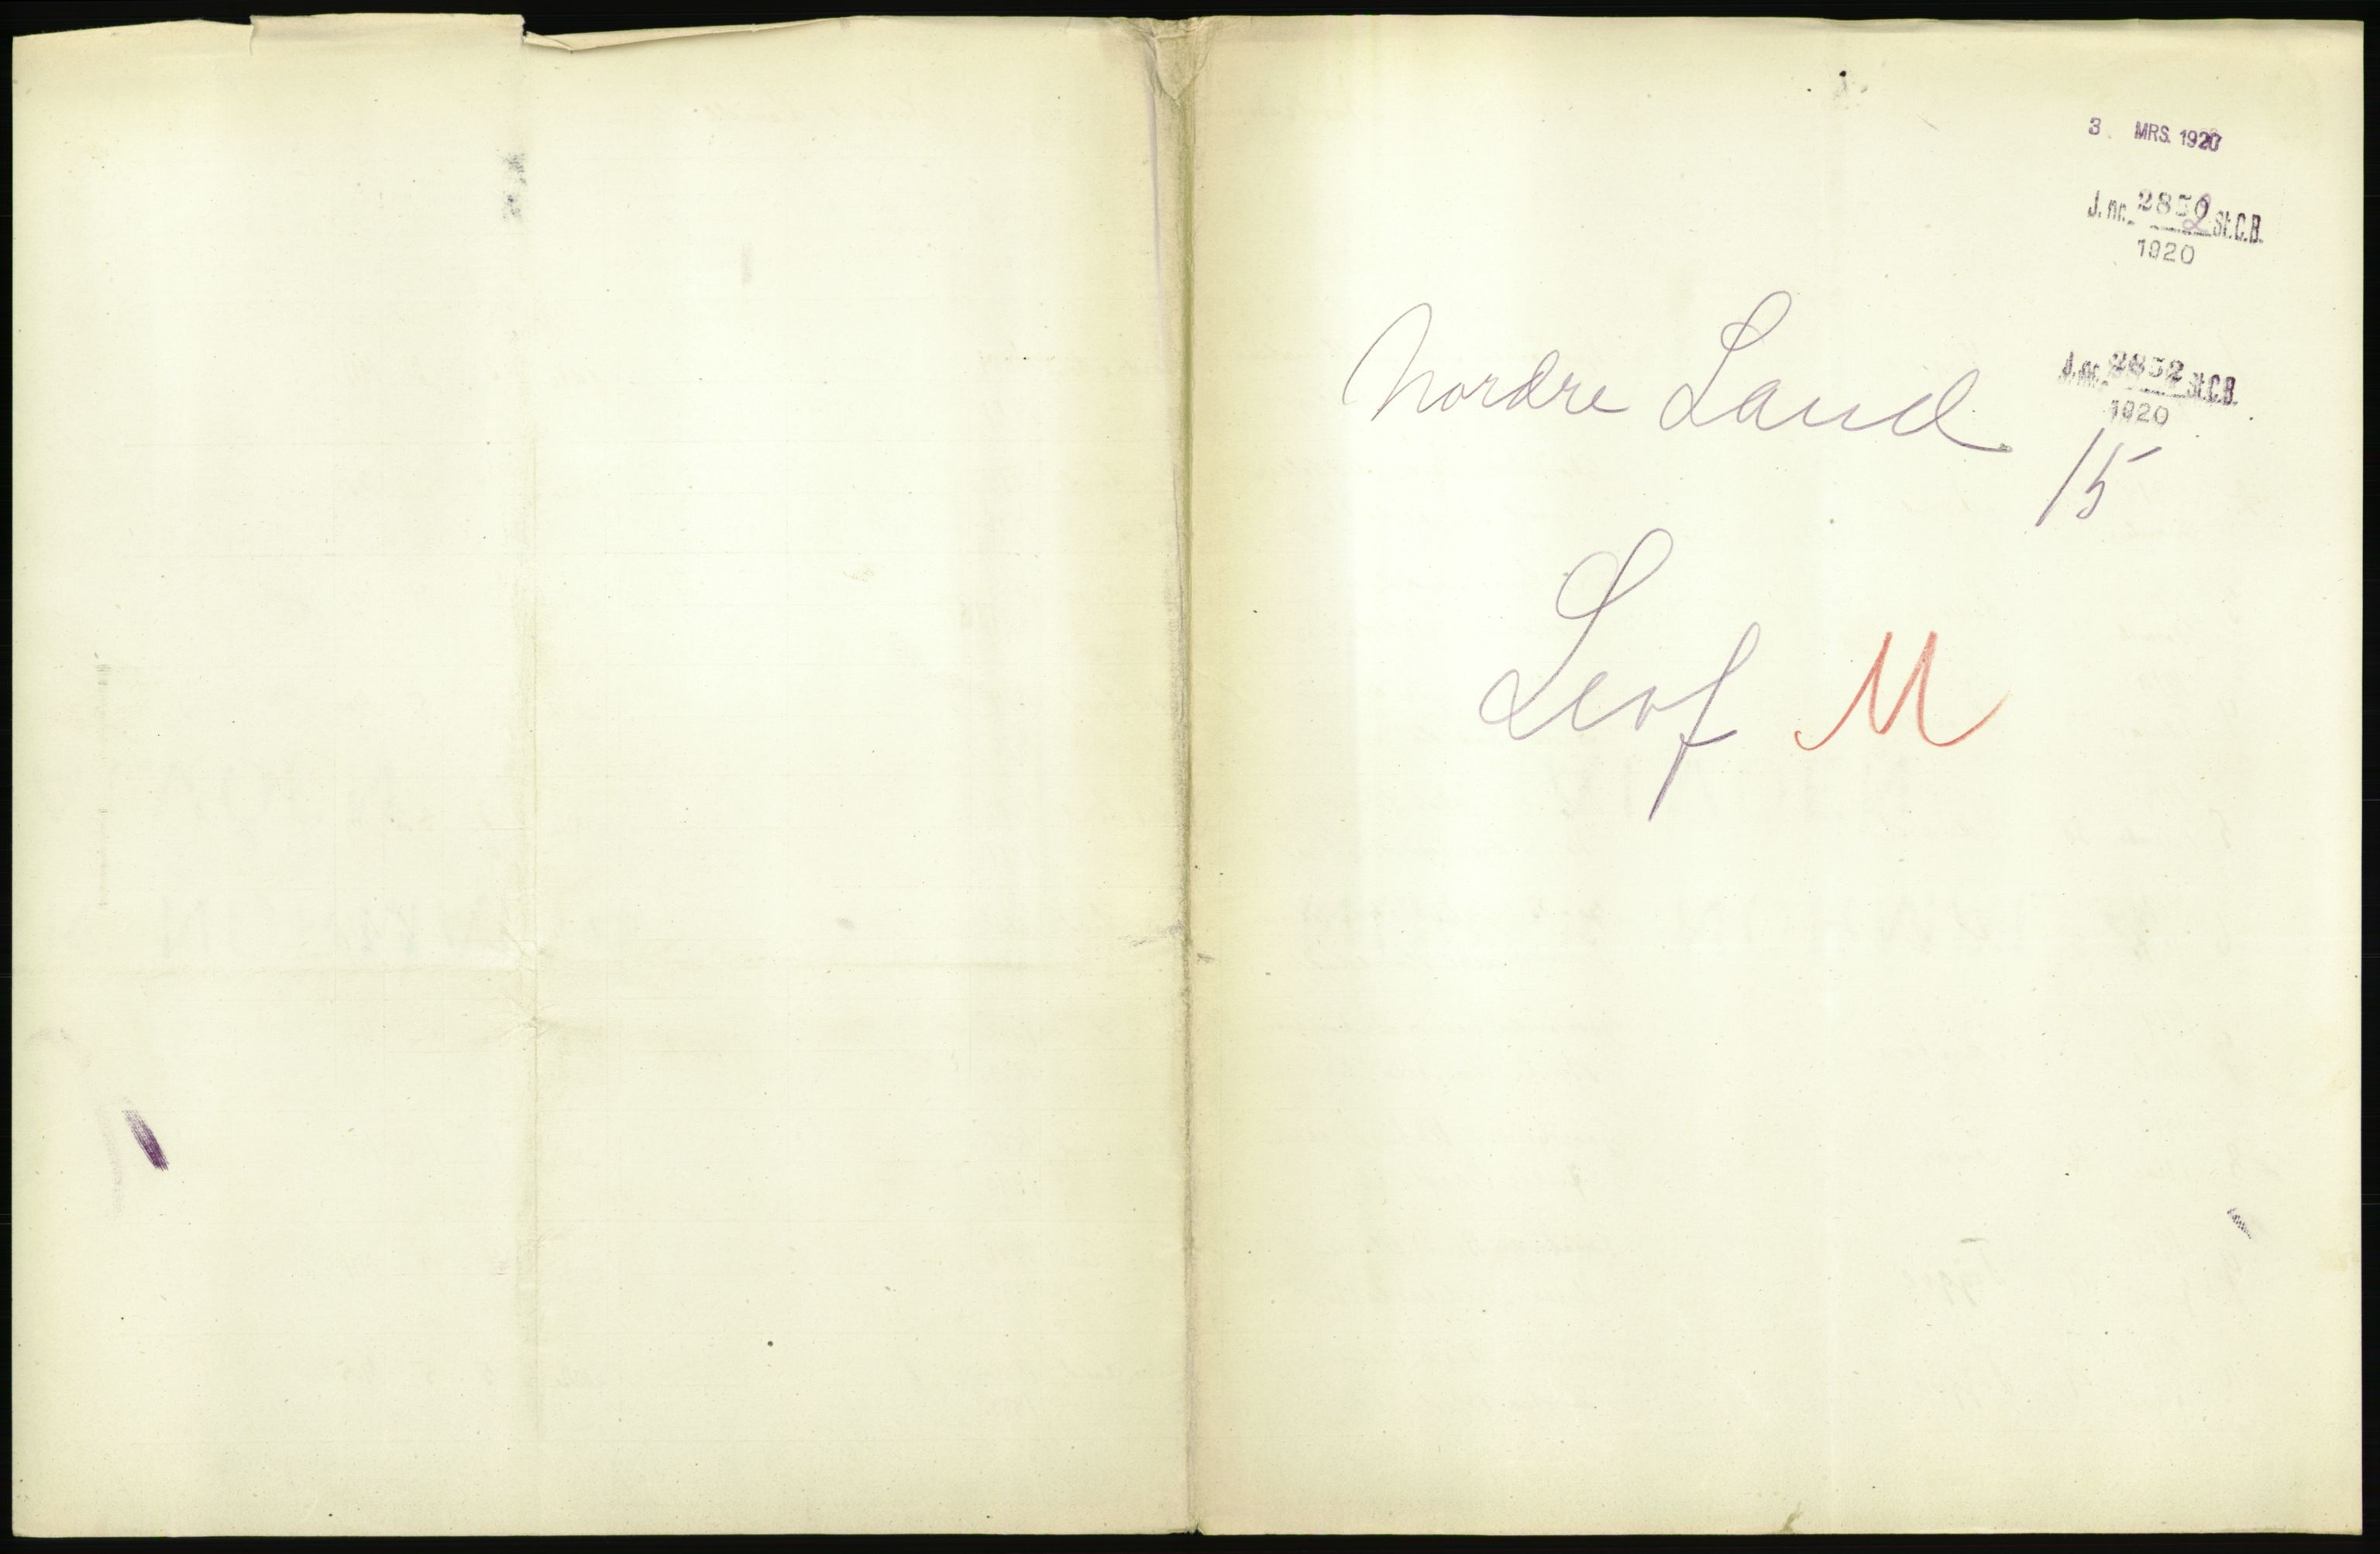 3. MRS. 1920
J. nr. 2852 St.C.B.
1920
Nordre Land
J. nr. 2852 St.C.B.
1920
15
Levf M